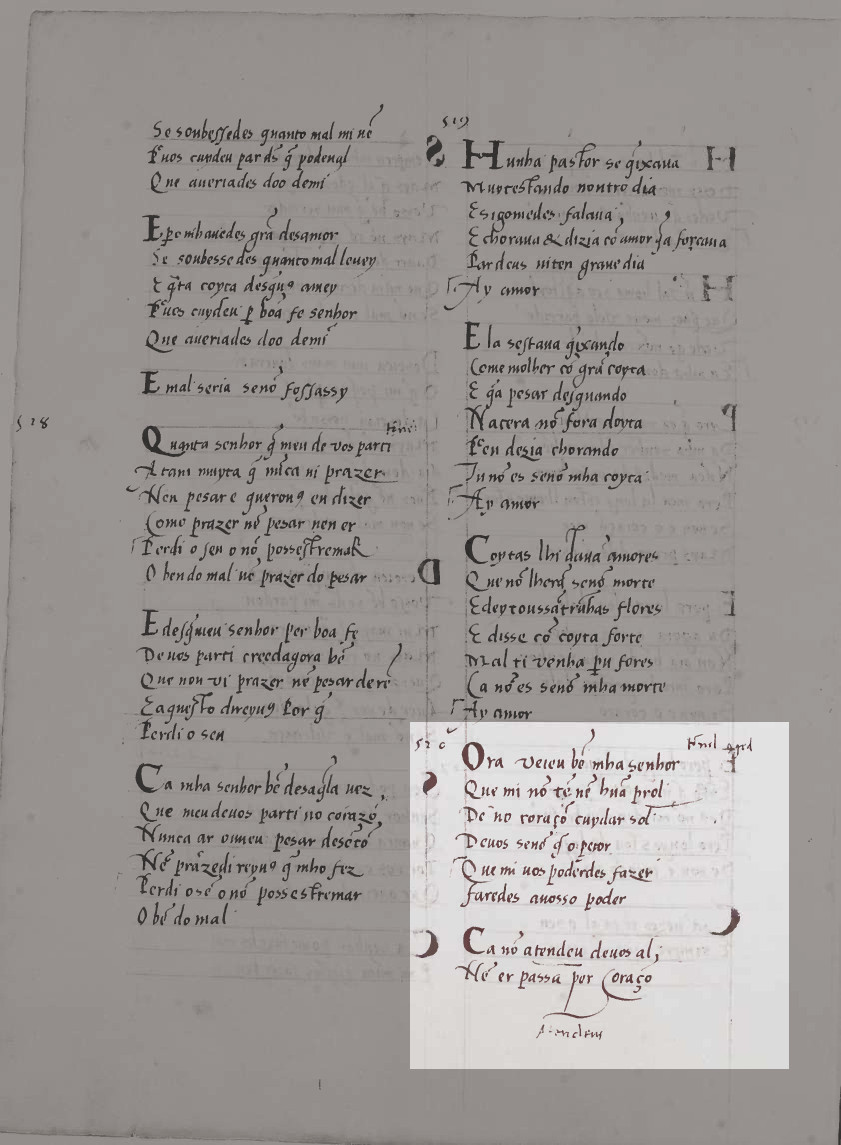 Se soubessedes quanto mal mi uẽ
Pᵉuos cuydeu par dš q̃ podengl
Que aueriades doo demi
E pero mhauedes grã desamor
Se soubessedes quanto mal leuey
E q̃ta coyta desquꝰ amey
Pᵉuos cuydeu ꝑ boã fe senhor
Que aueriades doo demi
E mal seria senõ fossassy
518
Quanta senhor q̃ meu de vos parti
Atam muyta q̃ nũca ui prazer
Nen pesar e querouꝰ en dizer
Como prazer nẽ pesar nen er
Perdi o sen o nõ possestremar
O ben do mal nẽ prazer do pesar
E desq̃meu senhor per boa fe
De uos parti creedagora bẽ
Que non vi prazer nẽ pesar de rẽ
E aquesto direyuꝰ Por q̃
Perdi o sen
Ca mha senhor bẽ desaq̃la uez
Que meu deuos parti no corazõ
Nunca ar ouueu pesar desẽtõ
Nẽ prazedireyuꝰ q̃ mho fez
Perdi o sẽ o nõ possestremar
O bẽ do mal
519
Hunha pastor se q̃ixaua
Muyt estando noutro dia
E sigo medes falaua
E choraua & dizia cõ amor q̃a forçaua
Par deus uiten graue dia
Ay amor
Ela sestaua q̃ixando
Come molher cõ grã coyta
E q̃a pesar desquando
Nacera nõ fora doyta
Pᵉen dezia chorando
Tu nõ es senõ mha coyta
Ay amor
Coytas lhi dauã amores
Que nõ lherã senõ morte
E deytoussãtrũhas flores
E disse cõ coyta forte
Mal ti venha pᵉu fores
Ca nõ es senõ mha morte
Ay amor
520
Ora ueieu bẽ mha senhor
Que mi nõ tẽ nẽ hũa prol
De no coraçõ cuydar sol
Deuos senõ q̃ o peior
Que mi uos poderdes fazer
faredes auosso poder
Ca nõ atendeu deuos al,
Nẽ er passa per Coraço
Atendeu